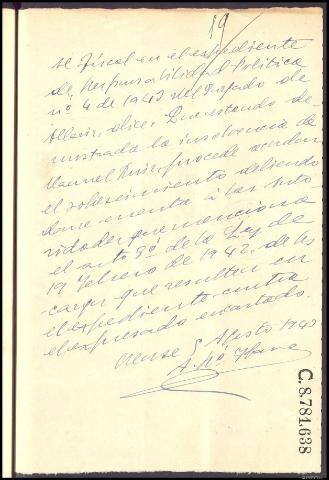 19
El Fiscal en el expediente
de Responsabilidad Política
nº 4 de 1943 del Juzgado de
Allariz dice: Que estando de-
mostrada la insolvencia de
Manuel procede acordar
el sobreseimiento debiendo
darse cuenta á las Auto-
ridades que menciona
el artº 8º de la Ley de
19 febrero de 1942, de los
cargos que resulten en
el expediente contra
el expresado encartado.
Orense 5 Agosto 1943
C.8.781.638